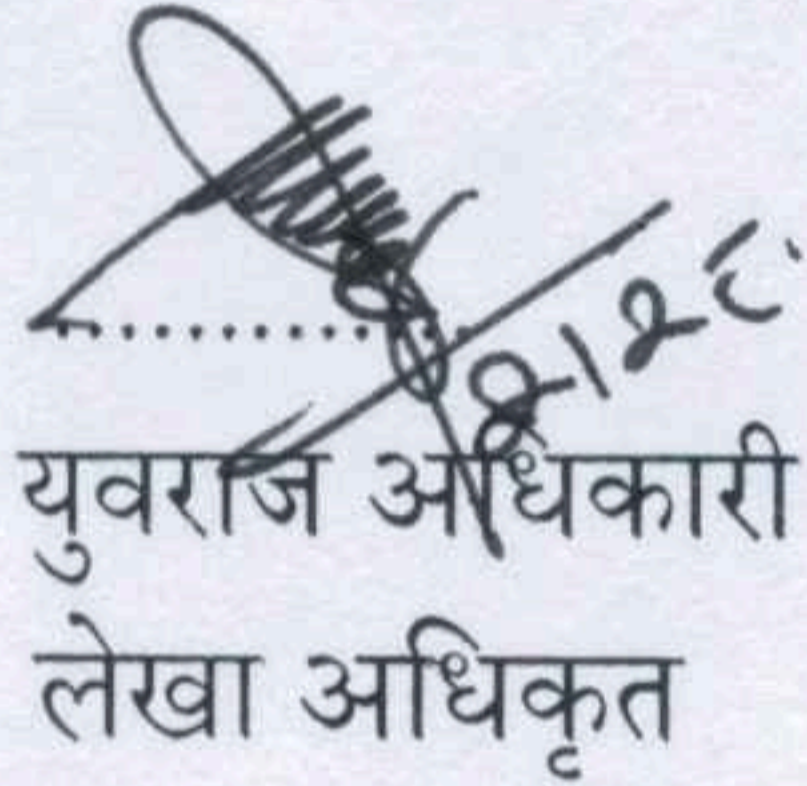 युवराज अधिकारी
लेखा अधिकृत